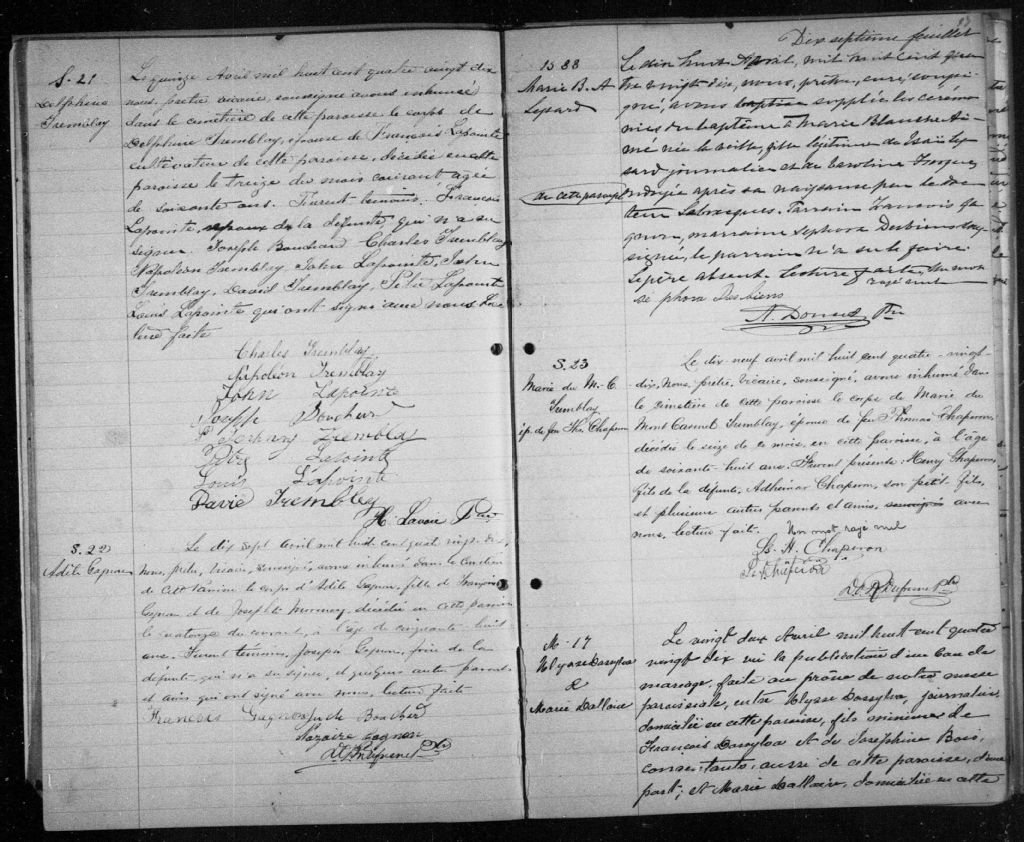 S. 21
Delphine
Tremblay
Le quinze Avril mil huit cent quatre vingt dix
nous, prêtre vicaire, soussigné avons inhumé
dans le cimetière de cette paroisse le corps de
Delphine Tremblay, épouse de François Lapointe
cultivateur de cette paroisse, décédée en cette
paroisse le treize du mois courant agée
de soixante ans. Furent témoins. François
Lapointe, époux de la défunte qui n'a su
signer Joseph Bouchard Charles Tremblay
Napoléon Tremblay, John Lapointe, John
Tremblay, David Tremblay, Pitre Lapointe
Louis Lapointe qui ont signé avec nous Lec
ture faite
Charles Tremblay
Napoléon Tremblay
John Lapointe
Boucher
Tremblay
Pitre Lapointe
Louis Lapointe
Davie Trembley
H. Lavoie Ptre
S. 22
Adèle Gagnon
Le dix sept avril mil huit cent quatre vingt dix,
nous, prêtre, vicaire, soussigné, avons inhumé dans le cimetière
de cette paroisse le corps d'Adèle Gagnon, fille de François
Gagnon et de Josephte, décédée en cette paroisse
le quatorze du courant, à l'âge de cinquante-huit
ans. Furent témoins, Joseph Gagnon, frère de la
défunte qui n'a su signer, et quelques autres parents
et amis qui ont signé avec nous, lecture faite
Francois Gagnon Boucher
Nazaire Gagnon
Ptre
Dix septième feuillet
B 88
Marie B. A
Lessard
de cette paroisse
Le dix huit Avril, mil huit cent qua
tre vingt dix, nous, prêtre, curé, soussi
gné, avons baptisé suppléé les cérémo
nies du baptême à Marie Blanche Ai
mé née la veille, fille légitime de
journalier et de Caroline
ondoyée après sa naissance par le doc
teur Parrain François Ga
gnon, marraine Sephora Desbiens sous
signée, le parrain n'a su le faire.
Le père absent Lecture faite, un mot
rayé nul
Sephora Desbiens
Ptre
S. 23
Marie du M. C
Tremblay
ép. de feu Ths. Chaperon
Le dix-neuf avril mil huit cent quatre-vingt-
dix, Nous, prêtre, vicaire, soussigné, avons inhumé dans
le cimetière de cette paroisse le corps de Marie du
Mont Carmel Tremblay, épouse de feu Thomas Chaperon,
décédée le seize de ce mois, en cette paroisse, à l'âge
de soixante-huit ans. Furent présents: Henry Chaperon,
fils de la défunte, Adhémar Chaperon, son petit-fils,
et plusieurs autres parents et amis, soussignés avec
nous, lecture faite. Un mot rayé nul
H. Chaperon
Chaperon
Ptre
M-17
Ulysse Dassylva
&
Marie Dallaire
Le vingt deux Avril mil huit cent quatre
vingt dix vu la publication d'un ban de
mariage, faite au prône de notre messe
paroissiale, entre Ulysse Dassylva, journalier,
domicilié en cette paroisse, fils mineur de
François Dassylva et de Joséphine Bois,
consentants, aussi de cette paroisse, d'une
part; et Marie Dallaire, domiciliée en cette